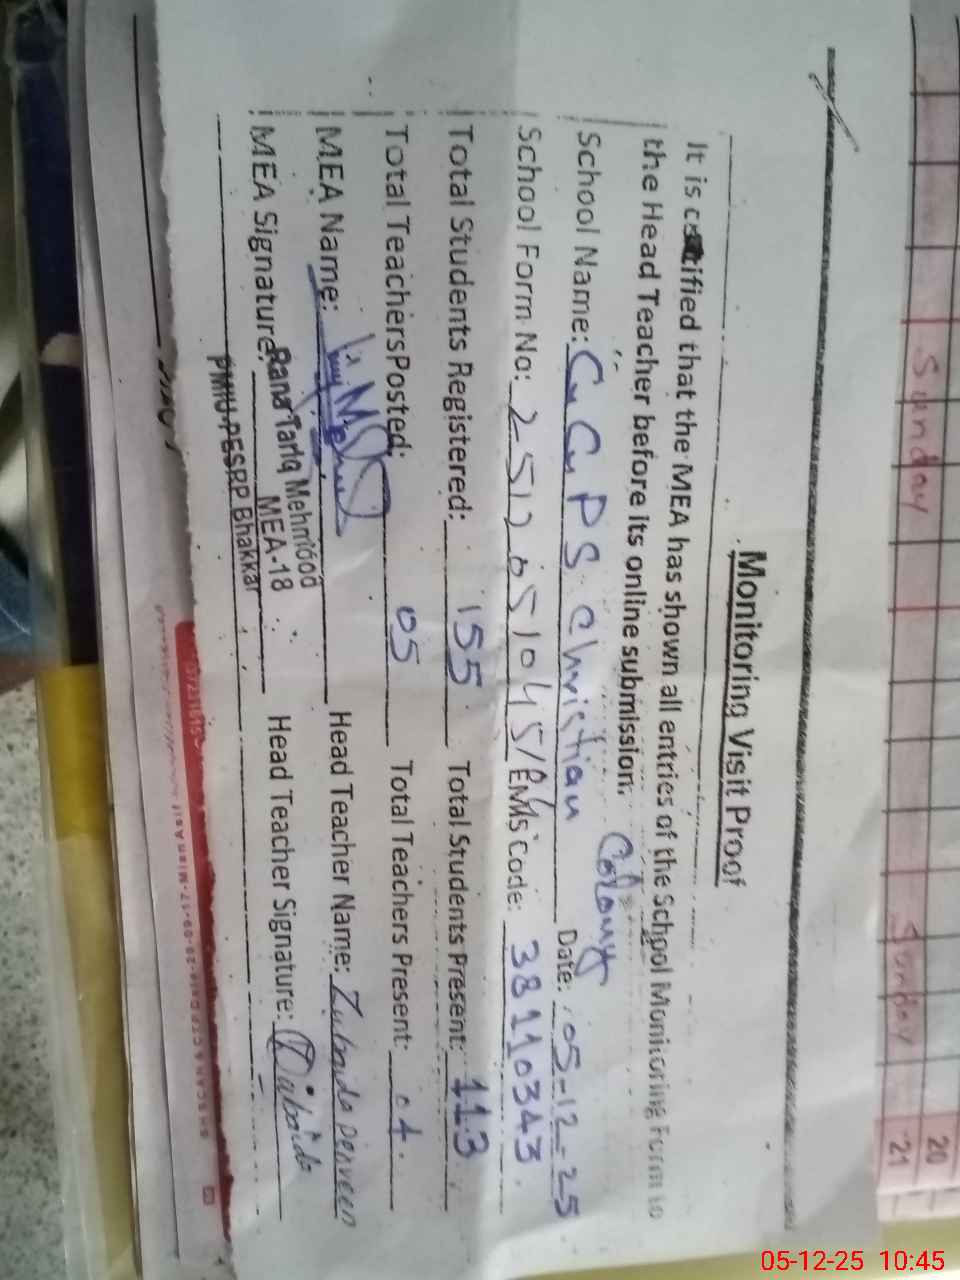 Monitoring Visit Proof
It is certified that the MEA has shown all entries of the School Monitoring Form to
the Head Teacher before its online submission.
School Name: Christian Colony Date: 05-12-25
School Form No: EMIS Code: 38110343
Total Students Registered: 155 Total Students Present: 113
Total Teachers Posted: 05 Total Teachers Present: 04
MEA Name: Head Teacher Name: Zubaida perveen
MEA Signature: Head Teacher Signature: Zubaida
Rana Tariq Mehmood
MEA-18
PMIU-PESRP Bhakkar
Sunday
Sunday
20
21
05-12-25 10:45